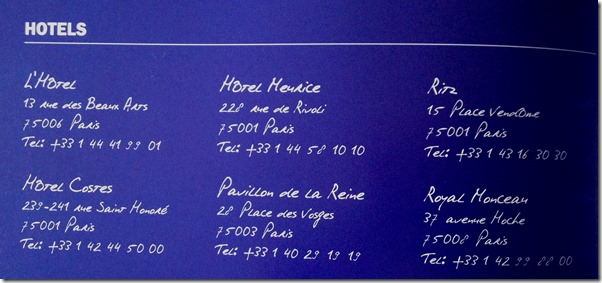 HOTELS
L'Hôtel
13 rue des Beaux Arts
75006 Paris
Tel: +33 1 44 41 99 01
Hôtel Meurice
228 rue de Rivoli
75001 Paris
Tel: +33 1 44 58 10 10
Ritz
15 Place Vendôme
75001 Paris
Tel: +33 1 43 16 30 30
Hôtel Costes
239-241 rue Saint Honoré
75001 Paris
Tel: +33 1 42 44 50 00
Pavillon de la Reine
28 Place des Vosges
75003 Paris
Tel: +33 1 40 29 19 19
Royal Monceau
37 avenue Hoche
75008 Paris
Tel: +33 1 42 99 88 00